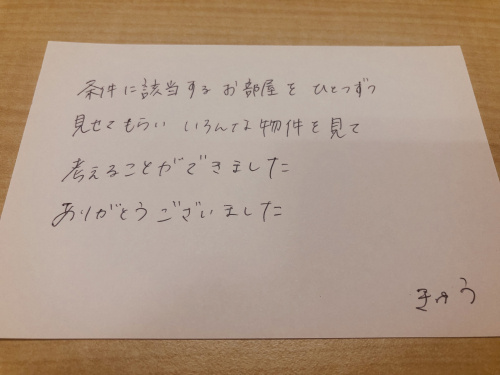 条件に該当するお部屋をひとつずつ
見せてもらい いろんな物件を見て
考えることができました
ありがとうございました
きゅう